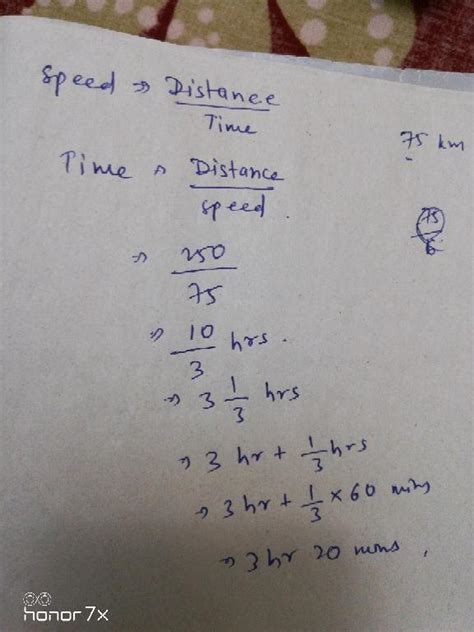 Speed ⇒ Distance
Time
75 km
Time ⇒ Distance
speed.
75
6
⇒ 250
75
⇒ 10 hrs.
3
⇒ 3 1/3 hrs
⇒ 3 hr + 1/3 hrs
⇒ 3 hr + 1/3 × 60 mins
⇒ 3 hr 20 mins,
honor 7x